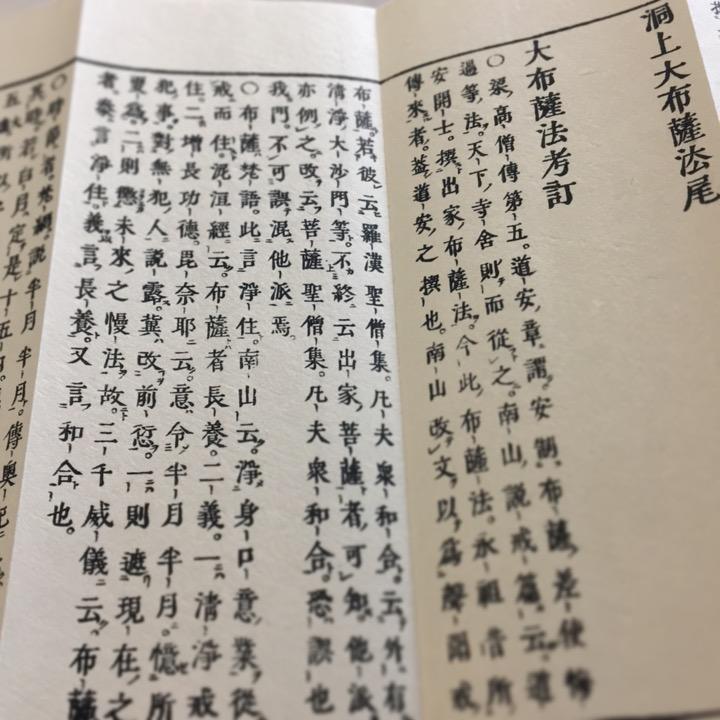 洞上大布薩法尾
大布薩法考訂
〇梁高僧傳第五。道安章謂。安制布薩差使悔
過等法。天下寺舍則而從之。南山說戒篇云。道
安開士。撰出家布薩法。今此布薩法。永祖昔所
傳來者。蓋道安之撰也。南山改文以爲聲聞戒
布薩。若彼云羅漢聖僧集。凡夫衆和合。云外有
清淨大沙門等。不終云出家菩薩者可知。他派
亦例之。改云菩薩聖僧集。凡夫衆和合。恐誤也
我門不可誤混他派焉
〇布薩梵語。此言淨住。南山云。淨身口意業從
戒而住。泥洹經云。布薩者長養。二義。一清淨戒
住。二增長功德。毘奈耶云。意令半月半月。憶所
犯事。對無犯人說露。冀改前愆。一則遮現在之
更爲。二則懲未來之慢法故。三千威儀云。布薩
者。秦言淨住。義言長養。又言和合也。
半月半月。傳
其時。若白月定是十五日。